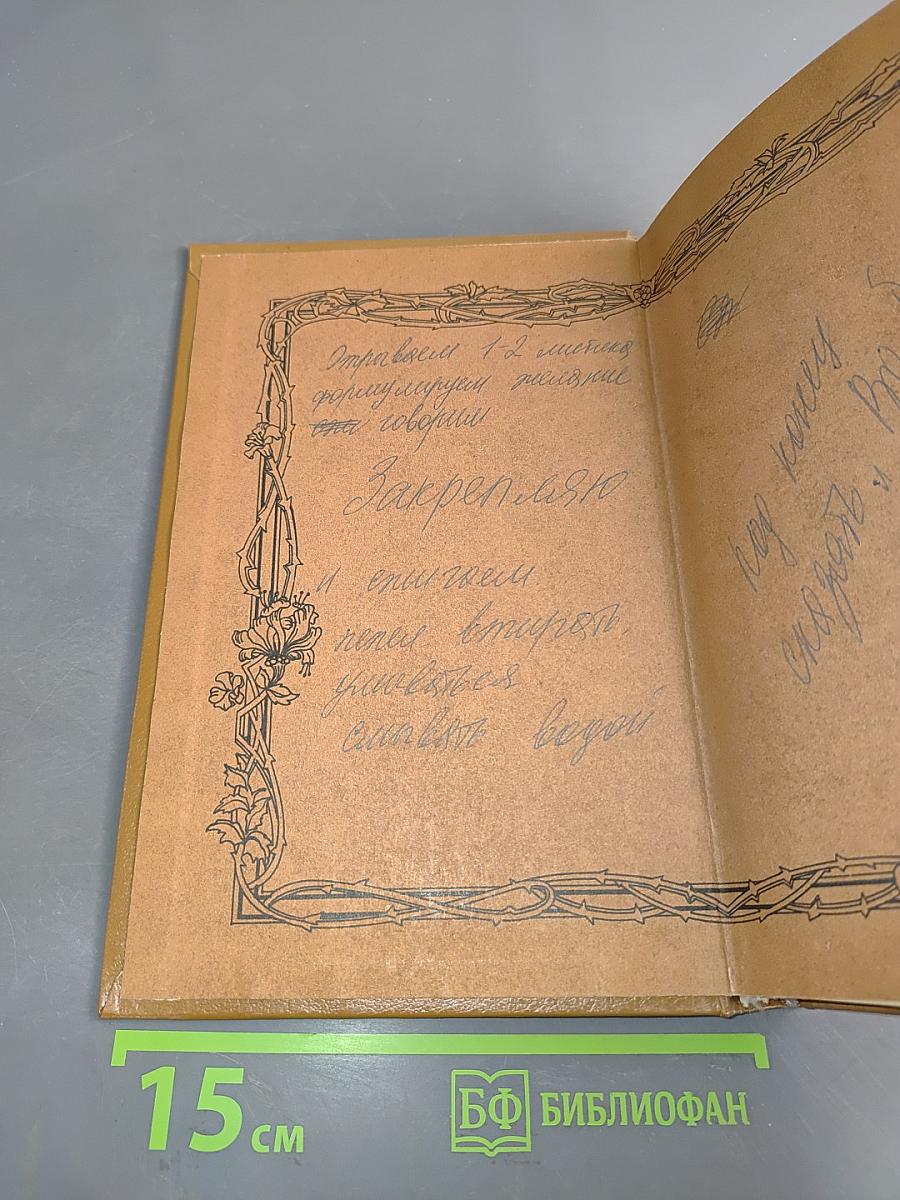 Отрываем 1-2 листика
формулируем желание
говорим
Закрепляю
и сжигаем
пепел втирать,
умываться
смывать водой
под конец
сказать "
15 см
БФ БИБЛИОФАН